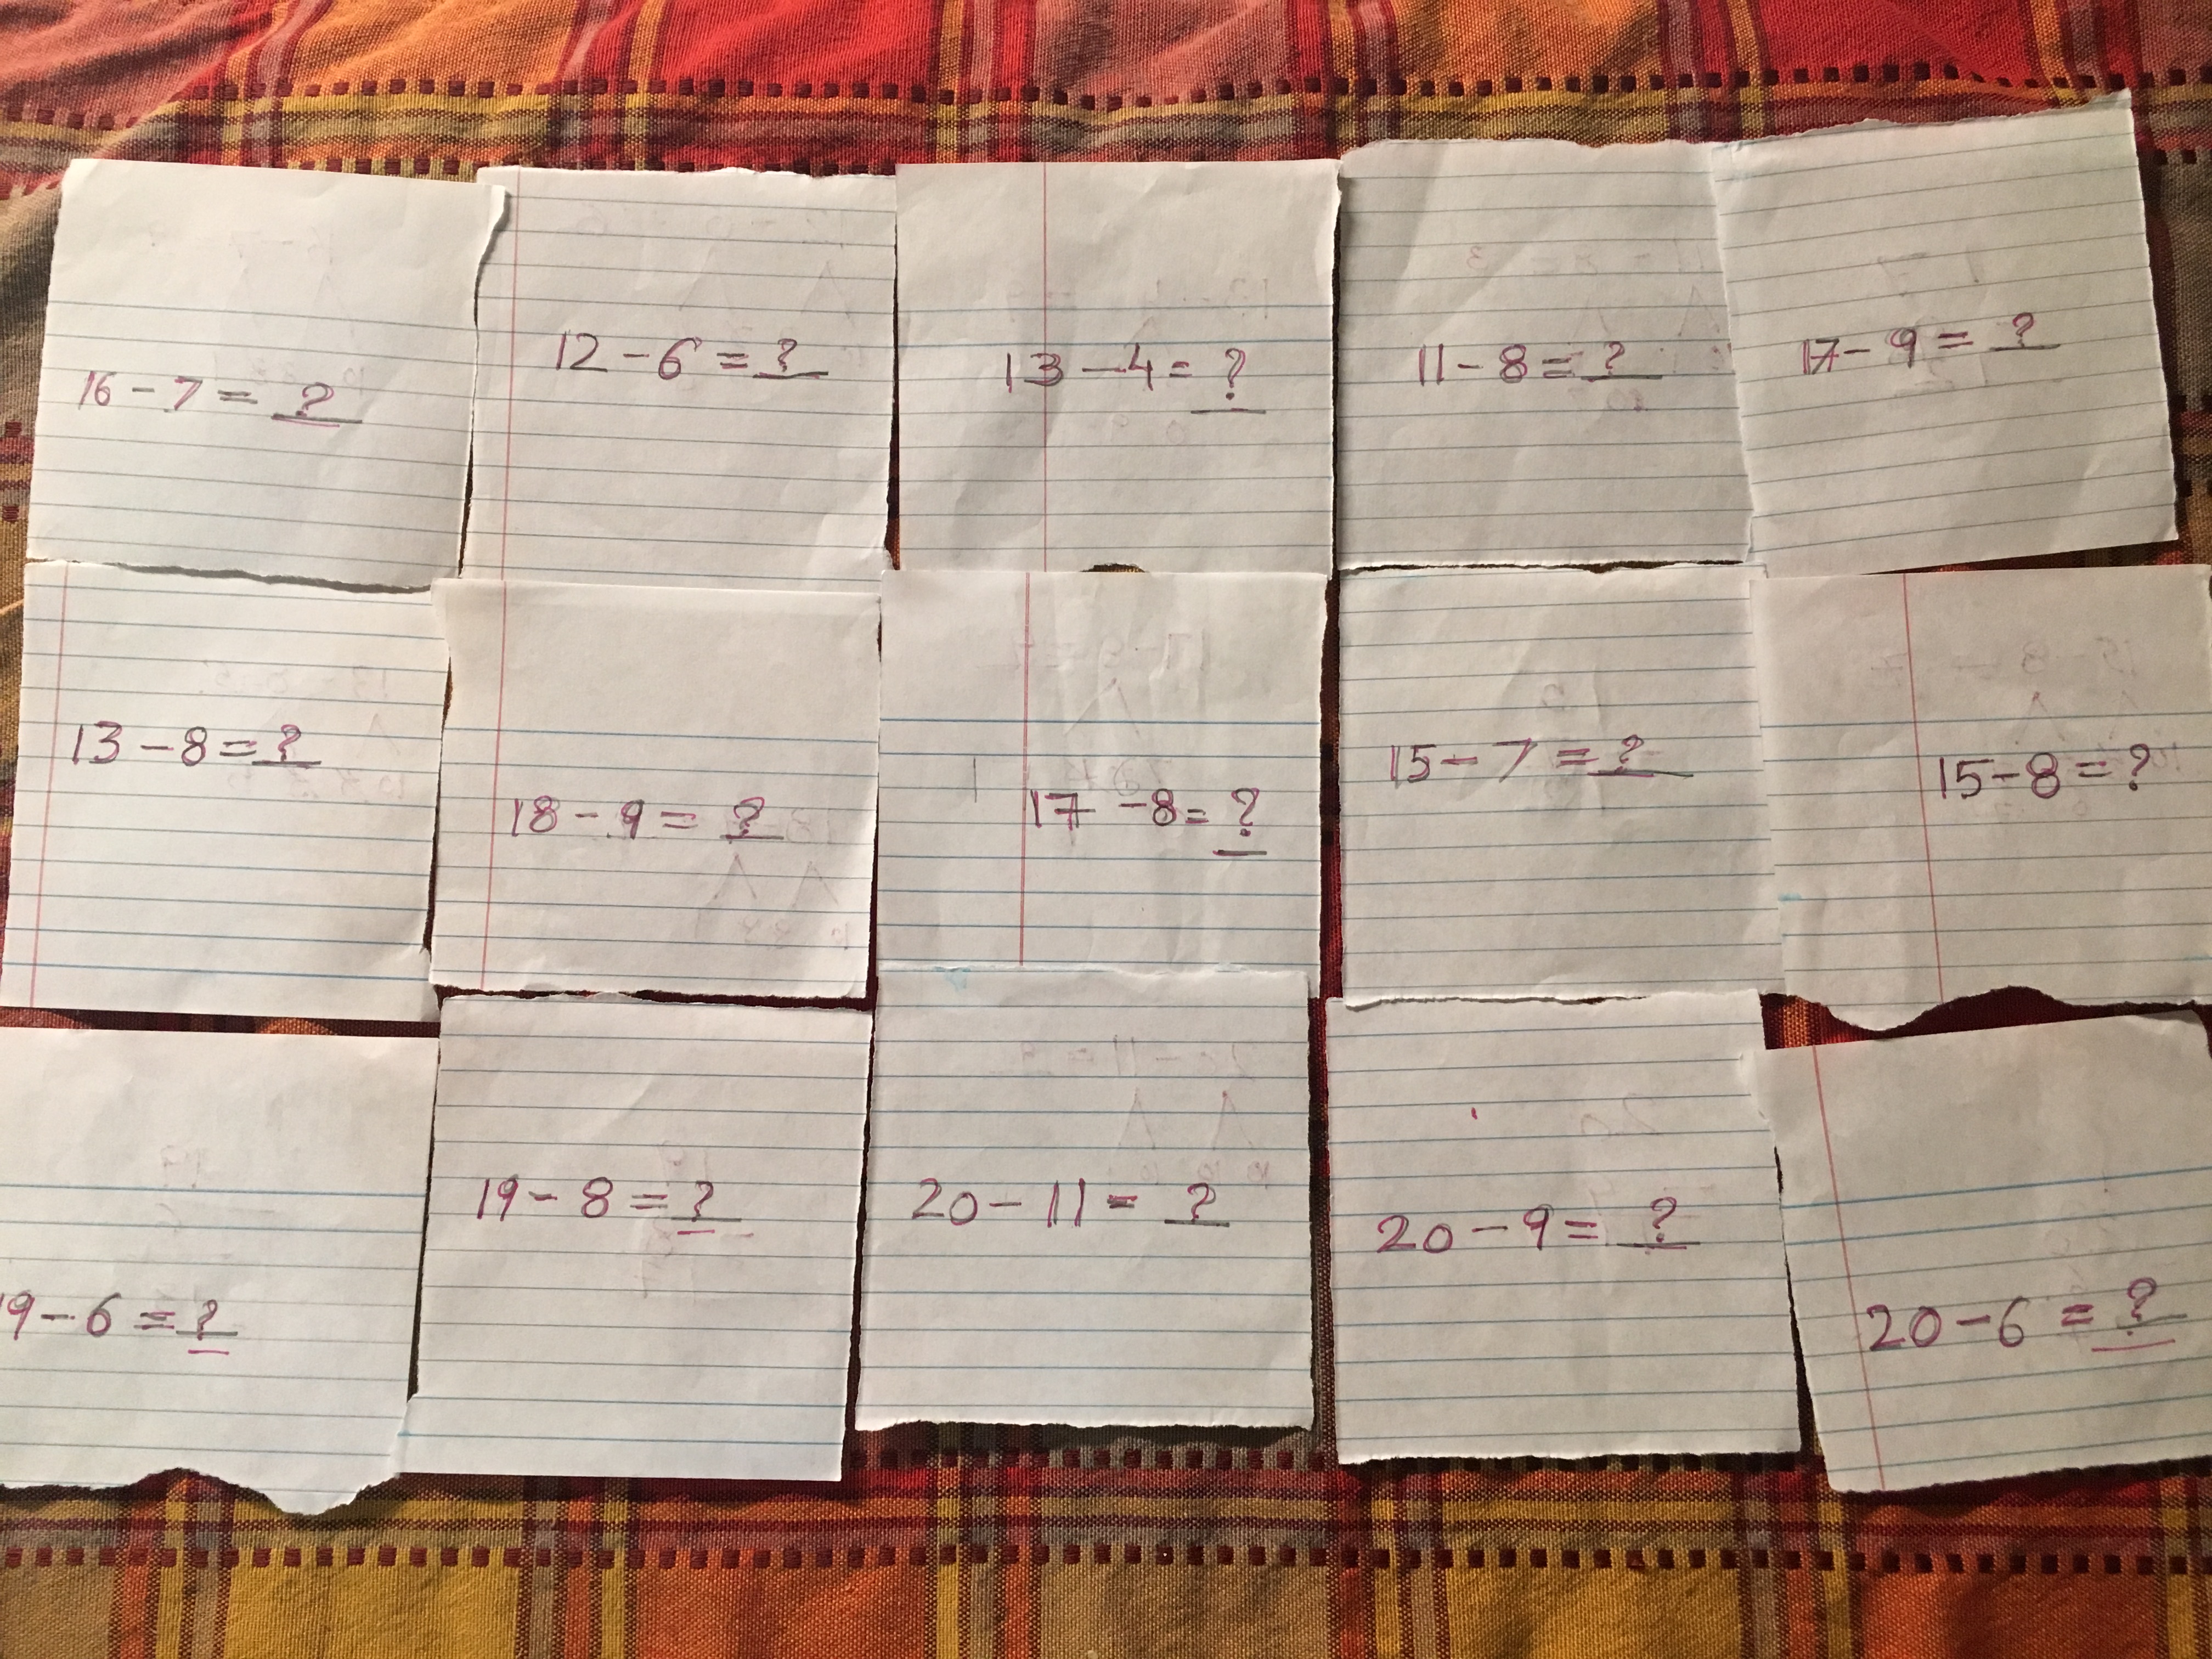 16 - 7 = ?
12 - 6 = ?
13 - 4 = ?
11 - 8 = ?
17 - 9 = ?
13 - 8 = ?
18 - 9 = ?
17 - 8 = ?
15 - 7 = ?
15 - 8 = ?
19 - 6 = ?
19 - 8 = ?
20 - 11 = ?
20 - 9 = ?
20 - 6 = ?